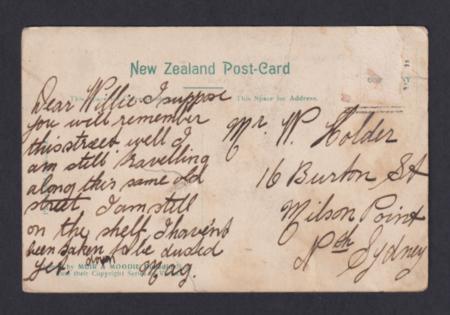 New Zealand Post-Card
This Space for Address.
Dear Willie I suppose
you will remember
this street well I
am still travelling
along this same old
street. I am still
on the shelf, I haven't
been taken to be dusted
yet
down
Mag.
by MUIR & MOODIE
their Copyright Series
Mr. W. Holder
16 Burton St
Milson Point
Nth Sydney